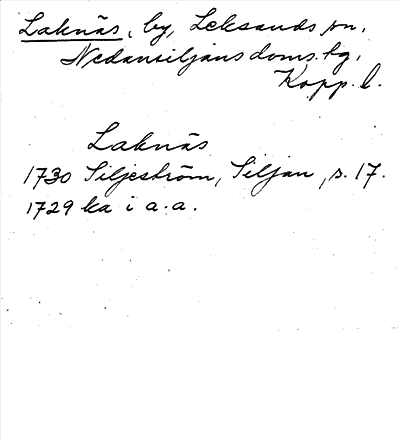 Laknäs, by, Leksands sn,
Nedansiljans doms.tg,
Kopp. l.
Laknäs
1730 Siljeström, Siljan, s. 17.
1729 ka i a.a.